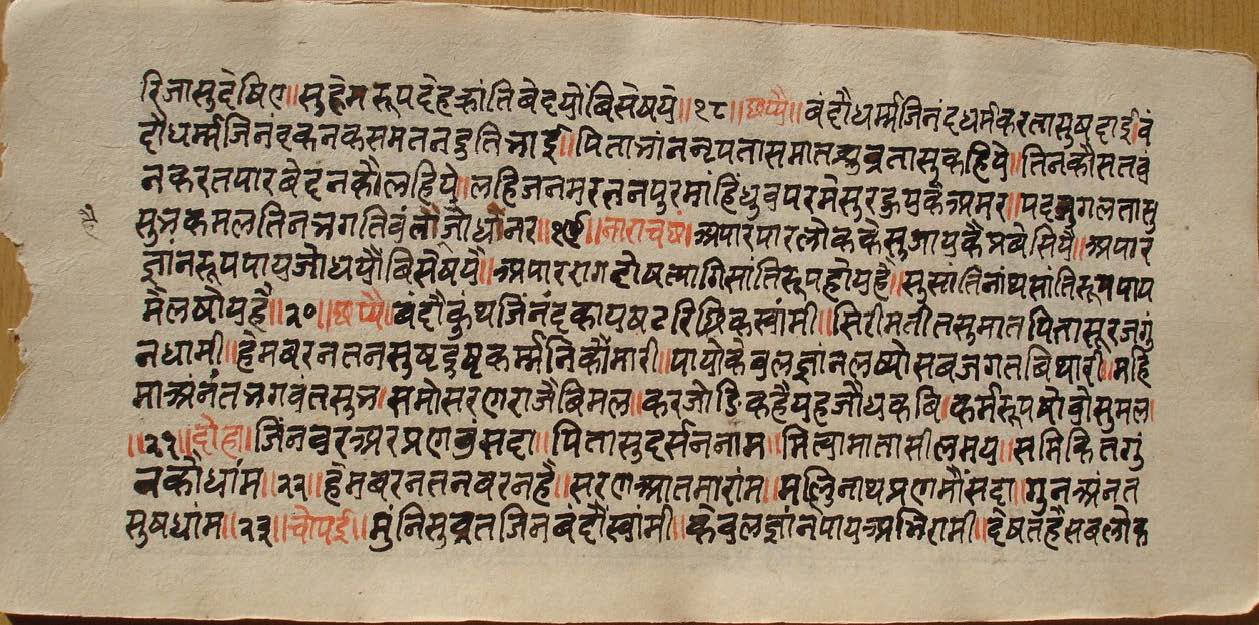 रिजासुदेषिए॥सुहेमरूपदेहक्रांतिबेदयोंबिसेषये॥१८॥छप्पै॥बंदौधर्म्मजिनंदधर्मकरतासुषदाई।बं
दौधर्म्मजिनंदकनकसमतनदुतिभाई॥पिताभांननृपतासमातश्युव्रतासुकहिये॥तिनकौसतव
नकरतपारबेदनकौलहिये॥लहिजनमरतनपुरमांहिंधुवपरमेसुरहुयकैअमर॥पदजुगलतासु
है
सुभकमलतिनभगतिवंतजोधोनर॥१९॥नाराचछंद॥अपारपारलोककैसुजायकैप्रबेसियै॥अपार
ज्ञांनरूपपायजोधयौंबिसेषयै॥अपाररागदोषत्यागिसांतिरूपहोयहै॥सुसातिनांथसांतिरूपपाप
मैलषोयहै॥२०॥छप्पै॥बंदौकुंथजिनंदकापषटरिधिकस्वांमी॥सिरीमतीतसुमातपितासूरजगुं
नधामी॥हेमबरनतनसुषदुषकर्म्मनिकौंमारी॥पायोकेवलज्ञांनलष्योसबजगतबिथारी॥महि
माअंनंतभगवंतसुभ।समोसरणराजैबिमल॥करजोडिकहैयहजोधकबि।कर्मरूपषोवोसुमल।
॥२१॥दोहा॥जिंनबरअरप्रणवुंसदा॥पितासुदर्सननाम॥मित्वामातासीलमय॥समिकितगुं
नकौधांम॥२२॥हेमबरनतनबरनहै॥सरणआतमारांम॥मल्लिनाथप्रणमौंसदा॥गुनअंनत
सुषधांम॥२३॥चोपई॥मुंनिसुव्रतजिनबंदौस्वांमी॥केवलज्ञांनपायअभिरामी॥देषतहैसबलोक